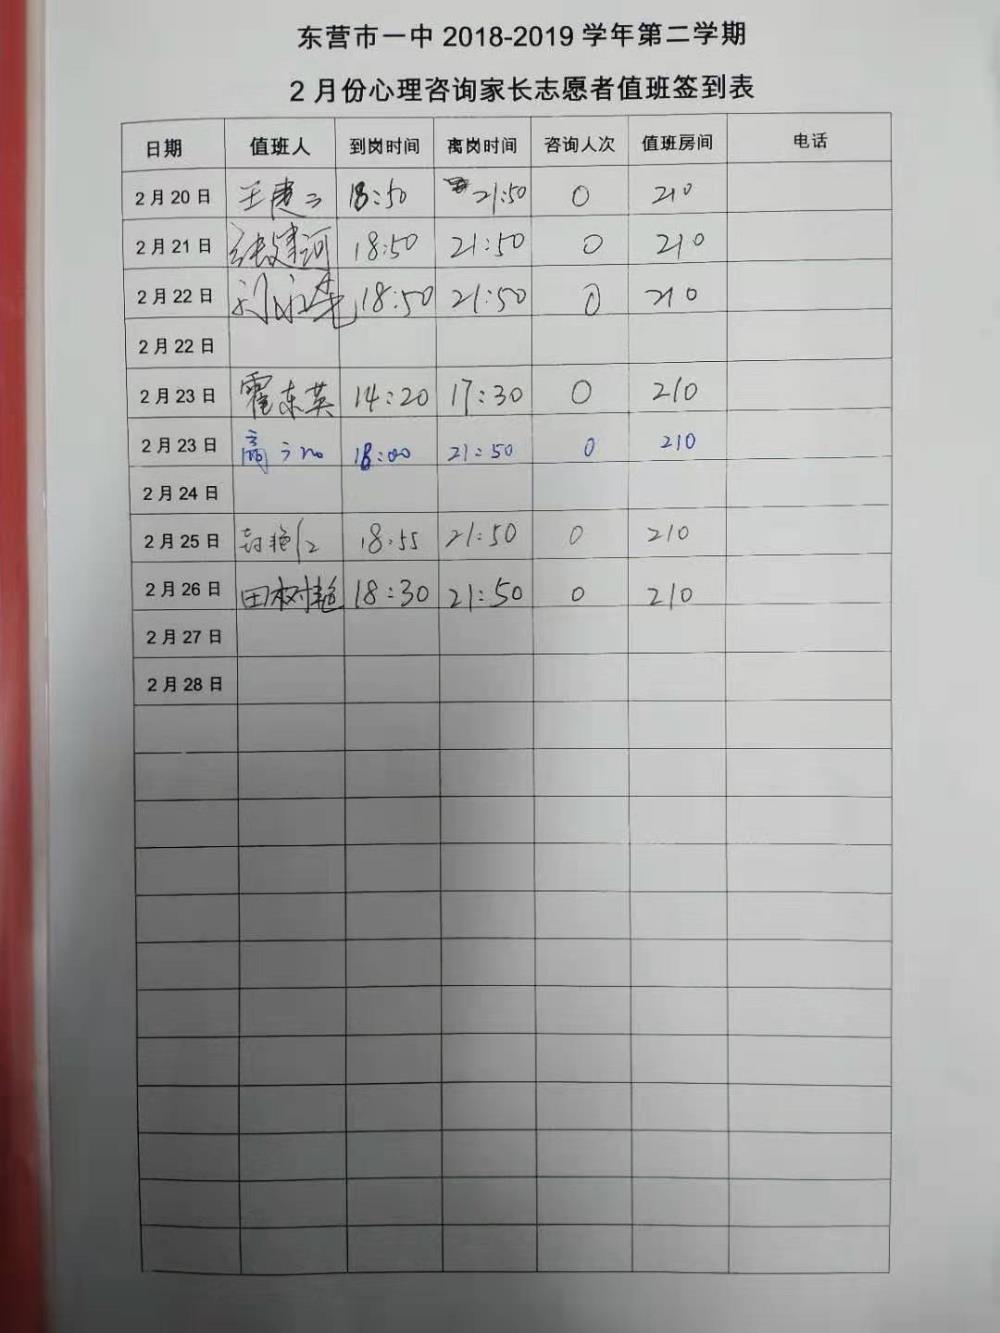 东营市一中 2018-2019 学年第二学期
2 月份心理咨询家长志愿者值班签到表
日期 值班人 到岗时间 离岗时间 咨询人次 值班房间 电话
2 月 20 日 18:50 21:50 0 210
2 月 21 日 张建河 18:50 21:50 0 210
2 月 22 日 18:50 21:50 0 210
2 月 22 日
2 月 23 日 霍东英 14:20 17:30 0 210
2 月 23 日 18:00 21:50 0 210
2 月 24 日
2 月 25 日 18:55 21:50 0 210
2 月 26 日 田树艳 18:30 21:50 0 210
2 月 27 日
2 月 28 日